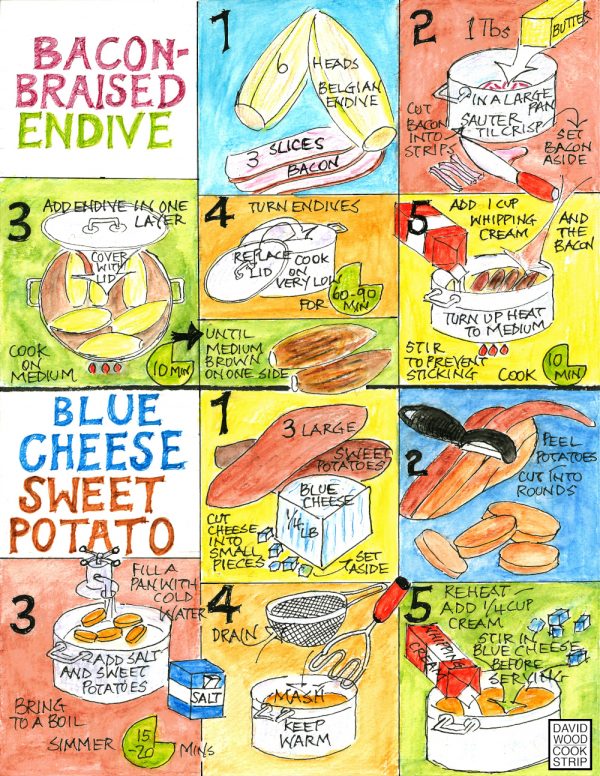 BACON-
BRAISED
ENDIVE
1
6 HEADS
BELGIAN
ENDIVE
3 SLICES
BACON
2
1 Tbs
BUTTER
IN A LARGE
PAN
SAUTER
TIL CRISP
CUT
BACON
INTO
STRIPS
SET
BACON
ASIDE
3
ADD ENDIVE IN ONE
LAYER
COVER
WITH
LID
COOK
ON
MEDIUM
10 MIN
4
TURN ENDIVES
REPLACE
LID
COOK
ON
VERY LOW
FOR
60-90
MIN
UNTIL
MEDIUM
BROWN
ON ONE SIDE
5
ADD 1 CUP
WHIPPING
CREAM
AND
THE
BACON
TURN UP HEAT
TO MEDIUM
STIR
TO PREVENT
STICKING
COOK
10
MIN
BLUE
CHEESE
SWEET
POTATO
1
3 LARGE
SWEET
POTATOES
BLUE
CHEESE
1/4 LB
CUT
CHEESE
INTO
SMALL
PIECES
SET
ASIDE
2
PEEL
POTATOES
CUT INTO
ROUNDS
3
FILL A
PAN WITH
COLD
WATER
ADD SALT
AND SWEET
POTATOES
SALT
BRING
TO A BOIL
SIMMER
15
-20
MINS
4
DRAIN
MASH
KEEP
WARM
5
REHEAT
ADD 1/4 CUP
CREAM
STIR IN
BLUE CHEESE
BEFORE
SERVING
WHIPPING
CREAM
DAVID
WOOD
COOK
STRIP